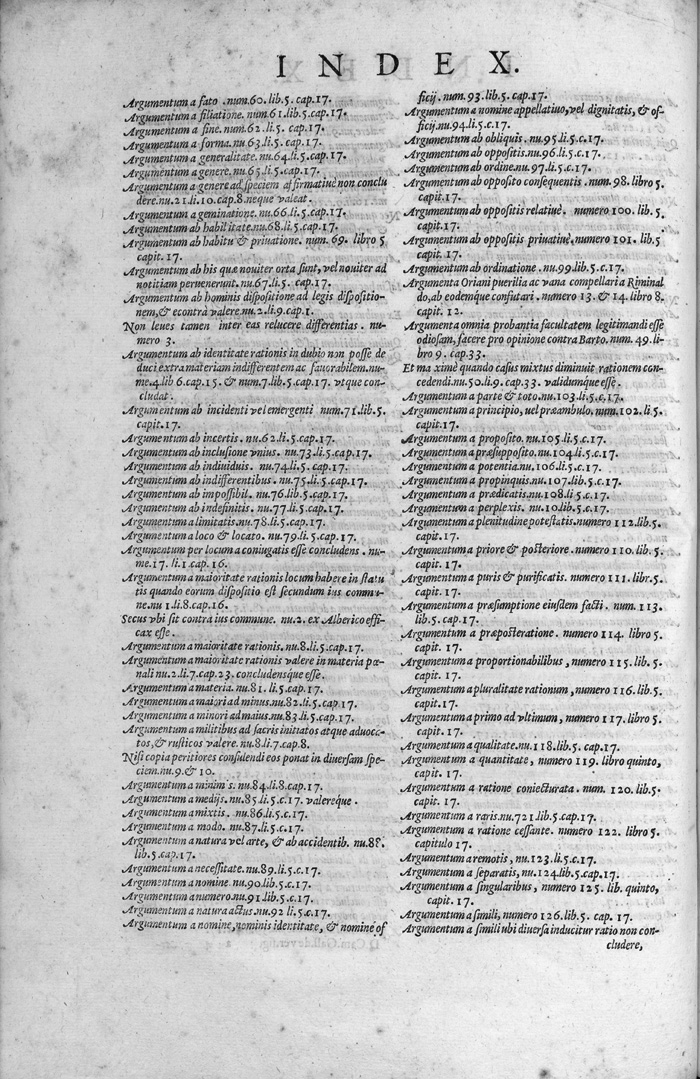 INDEX.
Argumentum a fato .num.60.lib.5.cap.17.
Argumentum a filiatione.num.61.lib.5.cap.17.
Argumentum a fine.num.62.li.5. cap.17.
Argumentum a forma.nu.63.li.5. cap.17.
Argumentum a generalitate.nu.64.li.5.cap.17.
Argumentum a genere.nu.65.li.5.cap.17.
Argumentum a genere ad speciem affirmatiuè non conclu
dere.nu.21.li.10.cap.8.neque valeat.
Argumentum a geminatione.nu.66.li.5.cap.17.
Argumentum ab habilitate.nu.68.li.5.cap.17.
Argumentum ab habitu & priuatione. num.69. libro 5
capit.17.
Argumentum ab his quæ nouiter orta sunt, vel nouiter ad
notitiam peruenerunt.nu.67.li.5. cap.17.
Argumentum ab hominis dispositione ad legis dispositio-
nem,& econtrà valere.nu.2.li.9.cap.1.
Non leues tamen inter eas relucere differentias. nu-
mero 3.
Argumentum ab identitate rationis in dubio non posse de
duci extra materiam indifferentem ac fauorabilem.nu-
me.4.lib 6.cap.15.& num.7.lib.5.cap.17. vtque con-
cludat.
Argumentum ab incidenti vel emergenti num.71.lib.5.
capit.17.
Argumentum ab incertis. nu.62.li.5.cap.17.
Argumentum ab inclusione vnius. nu.73.li.5.cap.17.
Argumentum ab indiuiduis. nu.74.li.5.cap.17.
Argumentum ab indifferentibus. nu.75.li.5.cap.17.
Argumentum ab impossibil. nu.76.lib.5.cap.17.
Argumentum ab indefinitis. nu.77.li.5.cap.17.
Argumentum a limitatis.nu.78.li.5.cap.17.
Argumentum a loco & locato. nu.79.li.5.cap.17.
Argumentum per locum a coniugatis esse concludens. nu-
me.17.li.1.cap.16.
Argumentum a maioritate rationis locum habere in statu
tis quando eorum dispositio est secundum ius commu-
ne.nu 1.li.8.cap.16.
Secus vbi sit contra ius commune. nu.2. ex Alberico effi-
cax esse.
Argumentum a maioritate rationis. nu.8.li.5.cap.17.
Argumentum a maioritate rationis valere in materia pœ-
nali nu.2.li.7.cap.23.concludensque esse.
Argumentum a materia. nu.81. li.5.cap.17.
Argumentum a maiori ad minus.nu.82.li.5.cap.17.
Argumentum a minori ad maius.nu.83.li.5.cap.17.
Argumentum a militibus ad sacris initiatos atque aduoca-
tos,& rusticos valere. nu.8.li.7.cap.8.
Nisi copia peritiores consulendi eos ponat in diuersam spe-
ciem.nu.9.& 10.
Argumentum a minim s. nu.84.li.8.cap.17.
Argumentum a medijs.nu.85.li.5.c.17. valereque.
Argumentum a mixtis. nu.86.li.5.c.17.
Argumentum a modo. nu.87.li.5.c.17.
Argumentum a natura vel arte, & ab accidentib. nu.88.
lib.5.cap.17.
Argumentum a necessitate. nu.89.li.5.c.17.
Argumentum a nomine.nu.90.lib.5.c.17.
Argumentum a numero.nu.91.lib.5.c.17.
Argumentum a natura actus.nu.92 li.5.c.17.
Argumentum a nomine,nominis identitate, & nomine of
ficij.num.93.lib.5.cap.17.
Argumentum a nomine appellatiuo,vel dignitatis, & of-
ficij.nu.94.li.5.c.17.
Argumentum ab obliquis. nu.95.li.5.c.17.
Argumentum ab oppositis.nu.96.li.5.c.17.
Argumentum ab ordine.nu.97.li.5.c.17.
Argumentum ab opposito consequentis .num.98.libro 5.
capit.17.
Argumentum ab oppositis relatiuè. numero 100. lib.5.
capit.17.
Argumentum ab oppositis priuatiuè.numero 101. lib.5
capit. 17.
Argumentum ab ordinatione .nu.99.lib.5.c.17.
Argumenta Oriani puerilia ac vana compellaria Riminal
do,ab eodemque confutari. numero 13. & 14.libro 8.
capit. 12.
Argumenta omnia probantia facultatem legitimandi esse
odiosam, facere pro opinione contra Barto.num.49.li-
bro 9. cap.33.
Et ma ximè quando casus mixtus diminuit rationem con-
cedendi.nu.50.li.9.cap.33. validumque esse.
Argumentum a parte & toto.nu.103.li.5.c.17.
Argumentum a principio, uel præambulo. num.102.li.5.
capit.17.
Argumentum a proposito. nu.105.li.5.c.17.
Argumentum a præsupposito.nu.104.li.5.c.17.
Argumentum a potentia.nu.106.li.5.c.17.
Argumentum a propinquis.nu.107.lib.5.c.17.
Argumentum a prædicatis.nu.108.li 5.c.17.
Argumentum a perplexis. nu.10.lib.5.c.17.
Argumentum a plenitudine potestatis.numero 112.lib.5.
capit.17.
Argumentum a priore & posteriore .numero 110.lib.5.
capit. 17.
Argumentum a puris & purificatis. numero 111. libr.5.
capit. 17.
Argumentum a præsumptione eiusdem facti. num.113.
lib.5.cap.17.
Argumentum a præposteratione. numero 114. libro 5.
capit. 17.
Argumentum a proportionabilibus, numero 115. lib.5.
capit. 17.
Argumentum a pluralitate rationum, numero 116. lib.5.
capit.17.
Argumentum a primo ad vltimum, numero 117. libro 5.
capit. 17.
Argumentum a qualitate.nu.118.lib.5. cap.17.
Argumentum a quantitate, numero 119. libro quinto,
capit. 17.
Argumentum a ratione coniecturata. num. 120.lib.5.
capit. 17.
Argumentum a raris.nu.721.lib.5.cap.17.
Argumentum a ratione cessante. numero 122. libro 5.
capitulo 17.
Argumentum a remotis, nu.123.li.5.c.17.
Argumentum a separatis, nu.124.lib.5.cap.17.
Argumentum a singularibus, numero 125. lib. quinto,
capit. 17.
Argumentum a simili, numero 126.lib.5. cap. 17.
Argumentum a simili ubi diuersa inducitur ratio non con-
cludere,